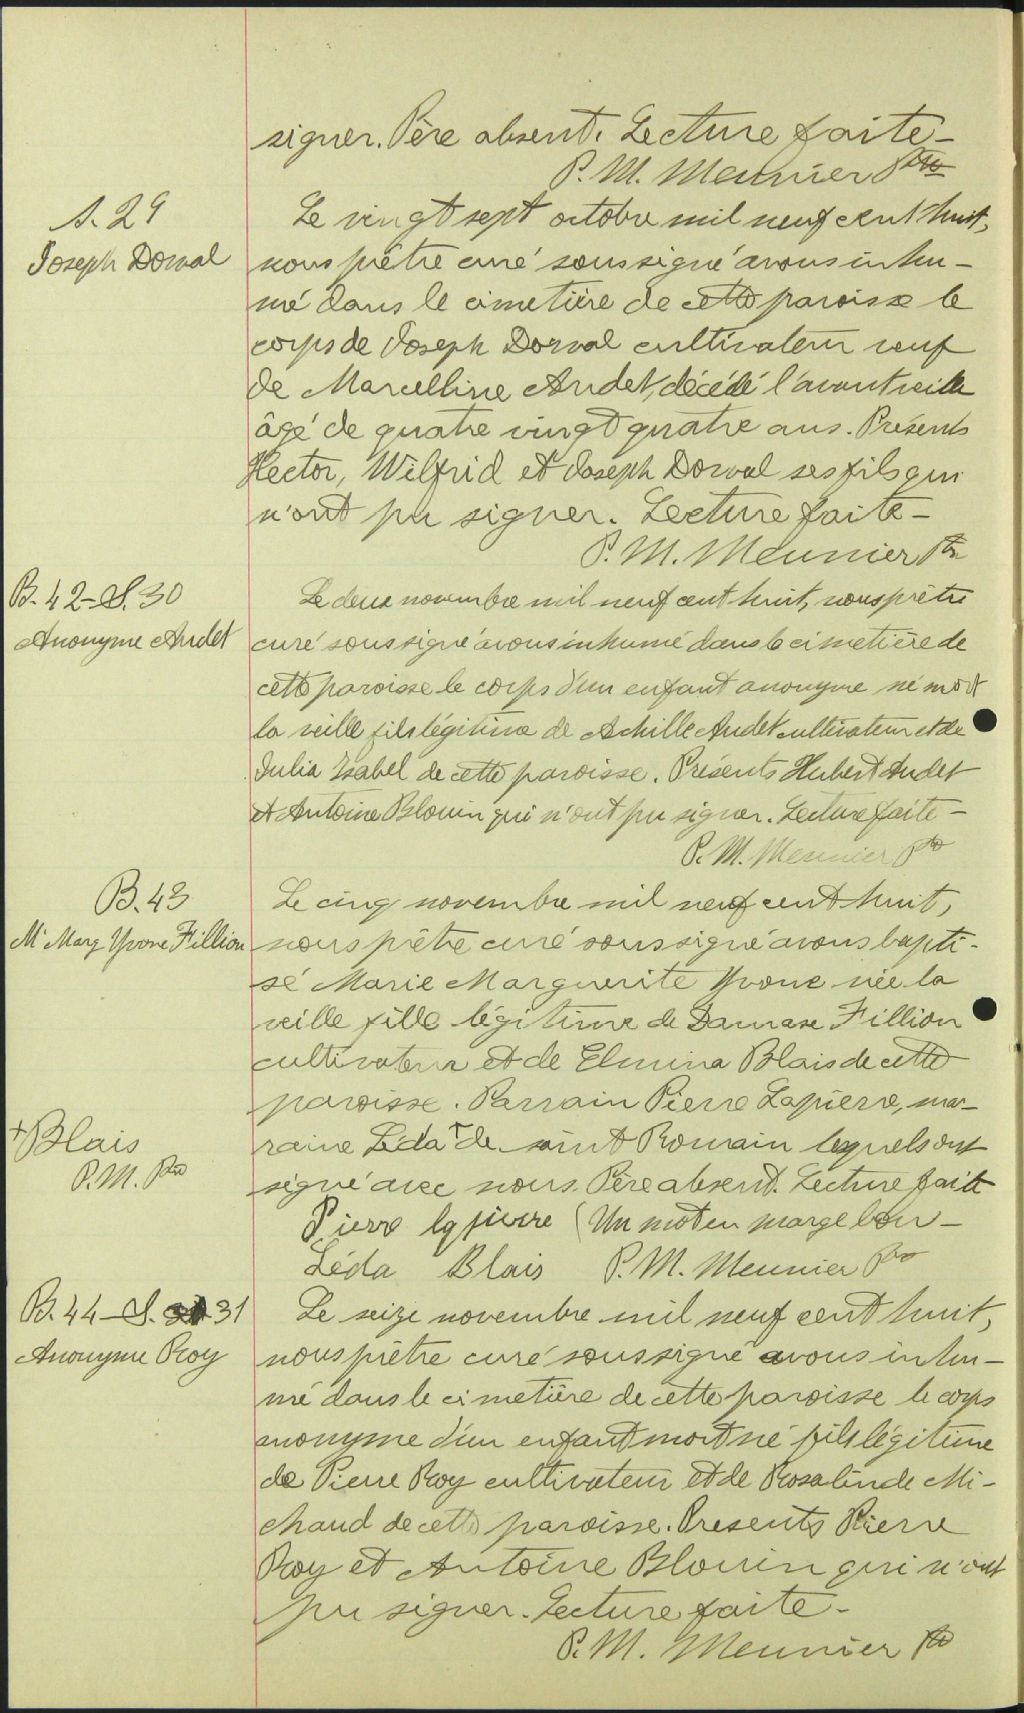 signer. Père absent. Lecture faite –
P. M. Meunier Ptre
S. 29
Joseph Dorval
Le vingt sept octobre mil neuf cent huit,
nous prêtre curé soussigné avons inhu-
mé dans le cimetière de cette paroisse le
corps de Joseph Dorval cultivateur veuf
de Marcelline Audet, décédé l'avant veille
âgé de quatre vingt quatre ans. Présents
Hector, Wilfrid et Joseph Dorval ses fils qui
n'ont pu signer. Lecture faite –
P. M. Meunier Ptre
B. 42 – S. 30
Anonyme Audet
Le deux novembre mil neuf cent huit, nous prêtre
curé soussigné avons inhumé dans le cimetière de
cette paroisse le corps d'un enfant anonyme né mort
la veille fils légitime de Achille Audet cultivateur et de
Julia Isabel de cette paroisse. Présents Hubert Audet
et Antoine Blouin qui n'ont pu signer. Lecture faite –
P. M. Meunier Ptre
B. 43
M. Marg Yvone Fillion
Le cinq novembre mil neuf cent huit,
nous prêtre curé soussigné avons bapti-
sé Marie Marguerite Yvone née la
veille fille légitime de Damase Fillion
cultivateur et de Elmina Blais de cette
paroisse. Parrain Pierre Lapierre, mar-
raine Léda + de saint Romain lesquels ont
signé avec nous. Père absent. Lecture faite
+ Blais
P. M. Ptre
Pierre lapierre (Un mot en marge bon –
Léda Blais P. M. Meunier Ptre
B. 44 – S. 31
Anonyme Roy
Le seize novembre mil neuf cent huit,
nous prêtre curé soussigné avons inhu-
mé dans le cimetière de cette paroisse le corps
anonyme d'un enfant mort né fils légitime
de Pierre Roy cultivateur et de Rosalinde Mi-
chaud de cette paroisse. Presents Pierre
Roy et Antoine Blouin qui n'ont
pu signer. Lecture faite –
P. M. Meunier Ptre